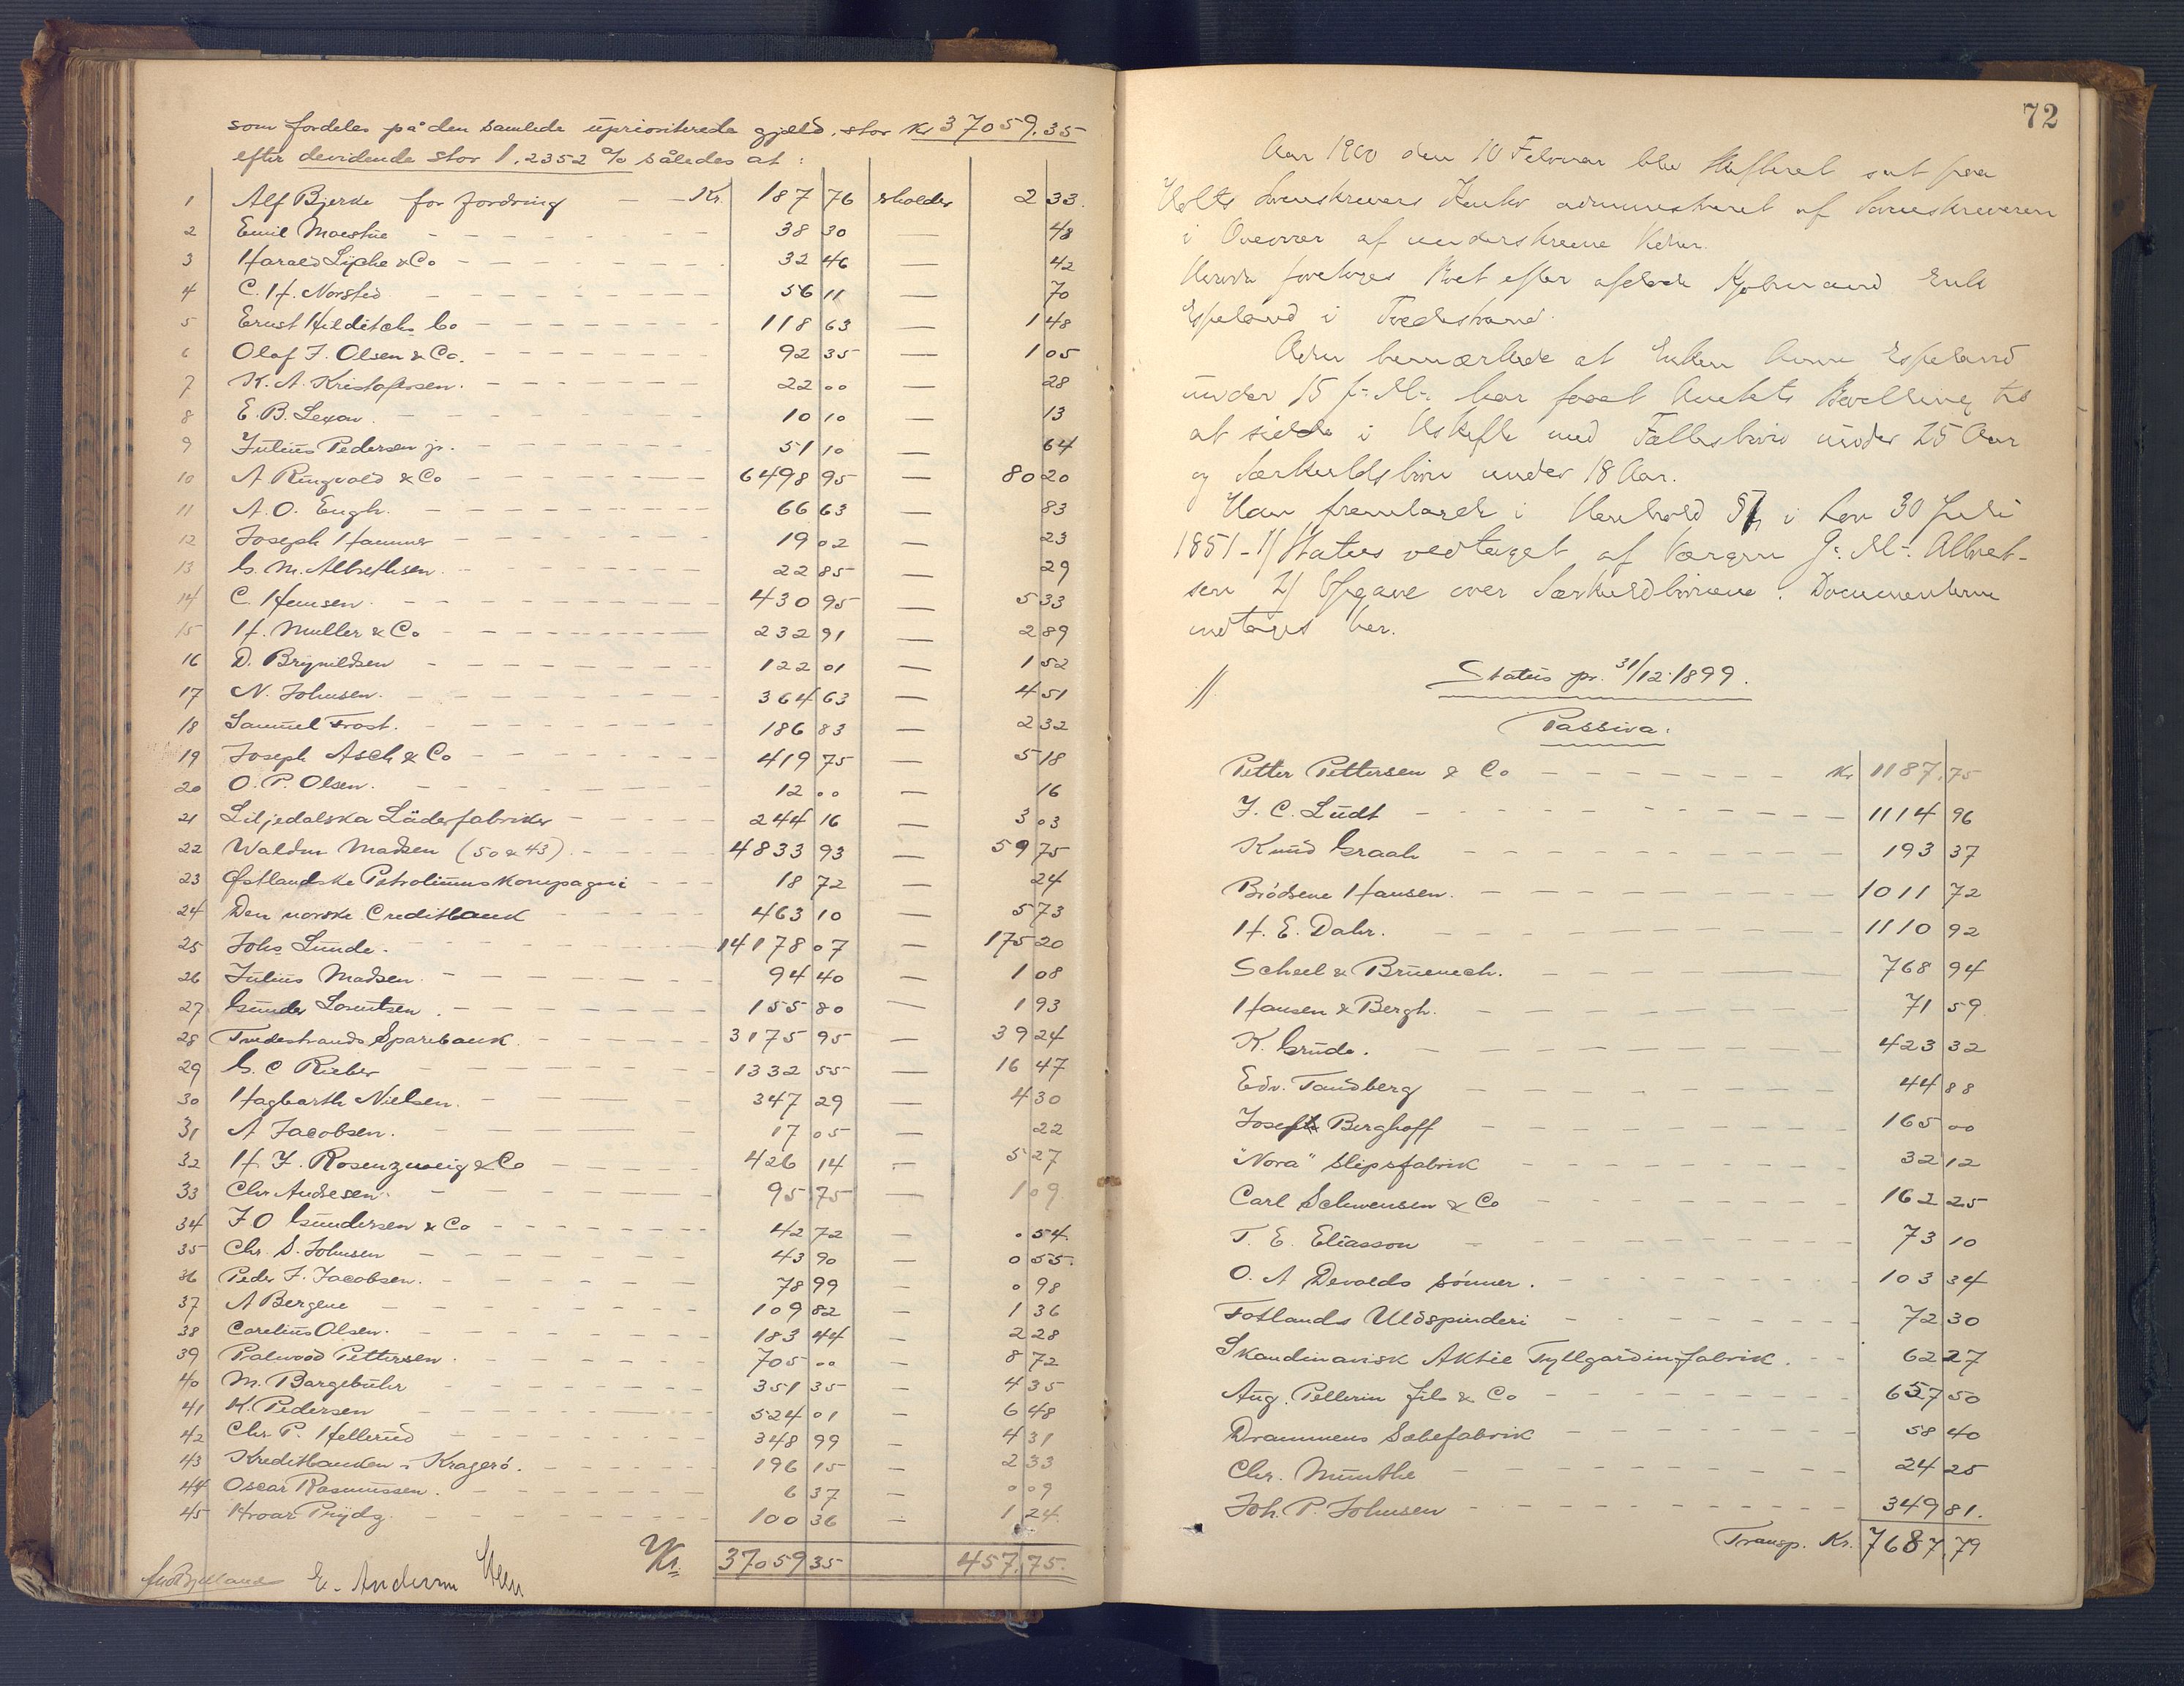 som fordeles på den samlede uprioriterede gjæld, stor Kr 37059.35
efter devidende stor 1,2352 % således at:
1 Alf Bjerke for fordring Kr. 187 76 erholder 2 33.
2 Emil Moestue 38 30 — 48
3 Harald Lyche & Co 32 46 — 42
4 C. H. Norsted 56 11 — 70
5 Ernst Hilditch Co 118 63 — 1 48
6 Olaf F. Olsen & Co. 92 35 — 1 05
7 K. A. Kristofersen. 22 00 — 28
8 E. B. Lexow 10 10 — 13
9 Julius Pedersen jr. 51 10 — 64
10 A Ringvold & Co 6498 95 — 80 20
11 A. O. Engh. 66 63 — 83
12 Joseph Hammer 19 02 — 23
13 G. M. Albrethsen. 22 85 — 29
14 C. Hemsen. 430 95 — 5 33
15 H. Muller & Co 232 91 — 2 89
16 D. Brynildsen 122 01 — 1 52
17 N. Johnsen. 364 63 — 4 51
18 Samuel Frost. 186 83 — 2 32
19 Joseph Asch & Co 419 75 — 5 18
20 O. P. Olsen. 12 00 — 16
21 Liljedalska Läderfabriker 244 16 — 3 03
22 Waldm Madsen (50 & 43) 4833 93 — 59 75
23 Østlandske Petroliumskompagni 18 72 — 24
24 Den norske Creditbank 463 10 — 5 73
25 Johs Lunde. 14178 07 — 175 20
26 Julius Madsen. 94 40 — 1 08
27 Gunder Lorentsen. 155 80 — 1 93
28 Tvedestrands Sparebank. 3175 95 — 39 24
29 G. C Rieber 1332 55 — 16 47
30 Hagbarth Nielsen. 347 29 — 4 30
31 A Jacobsen. 17 05 — 22
32 H. F. Rosenzweig & Co 426 14 — 5 27
33 Chr Andresen. 95 75 — 1 09
34 F O Gundersen & Co 42 72 — 0 54.
35 Chr. S. Johnsen 43 90 — 0 55.
36 Peder F. Jacobsen. 78 99 — 0 98
37 A Bergene 109 82 — 1 36
38 Carelius Olsen. 183 44 — 2 28
39 Palwood Pettersen. 705 00 — 8 72
40 M. Bargebuhr 351 35 — 4 35
41 K. Pedersen 524 01 — 6 48
42 Chr. P. Hellerud 348 99 — 4 31
43 Kreditbanken i Kragerø. 196 15 — 2 33
44 Oscar Rasmussen. 6 37 — 0 09
45 Hroar Prydz. 100 36 — 1 24.
Kr. 37059 35 457.75.
E. Andersen
72
Aar 1900 den 10 Februar blev Skifteret sat paa
Holts Sorenskrivers Kontor administreret af Sorenskriveren
i Overvær af underskrevne Vidner.
Herved foretoges Boet efter afdøde Kjøbmand
Espeland i Tvedestrand.
bemærkede at Enken Anne Espeland
under 15 f. M. har faaet Amtets Bevilling til
at sidde i Uskifte med Fællesbørn under 25 Aar
og Særkuldsbørn under 18 Aar.
Han fremlagde i Henhold § i Lov 30 Juli
1851 - 1/ Status vedtaget af Værgen G. M. Albret-
sen 2/ Opgave over Særkuldbørnene. Documenterne
indtages her.
1/. Status pr. 31/12. 1899.
Passiva:
Petter Pettersen & Co Kr 1187.75
F. C. Lüdt 1114 96
Knud Graah 193 37
Brødrene Hansen. 1011 72
H. E. Dahr. 1110 92
Scheel & Bruenech. 768 94
Hansen & Bergh. 71 59
K. Grude. 423 32
Edv. Tandberg 44 88
Joseph Berghoff 165 00
"Nora" Slipsfabrik 32 12
Carl Schwensen & Co 162 25
T. E. Eliasson 73 10
O. A Devolds sønner. 103 34
Fotlands Uldspinderi 72 30
Skandinavisk Aktie Tyllgardinfabrik. 62 27
Aug. Pellerin fils & Co 657 50
Drammens Sæbefabrik 58 40
Chr. Munthe 24 25
Joh. P. Johnsen 349 81.
Transp. Kr. 7687.79